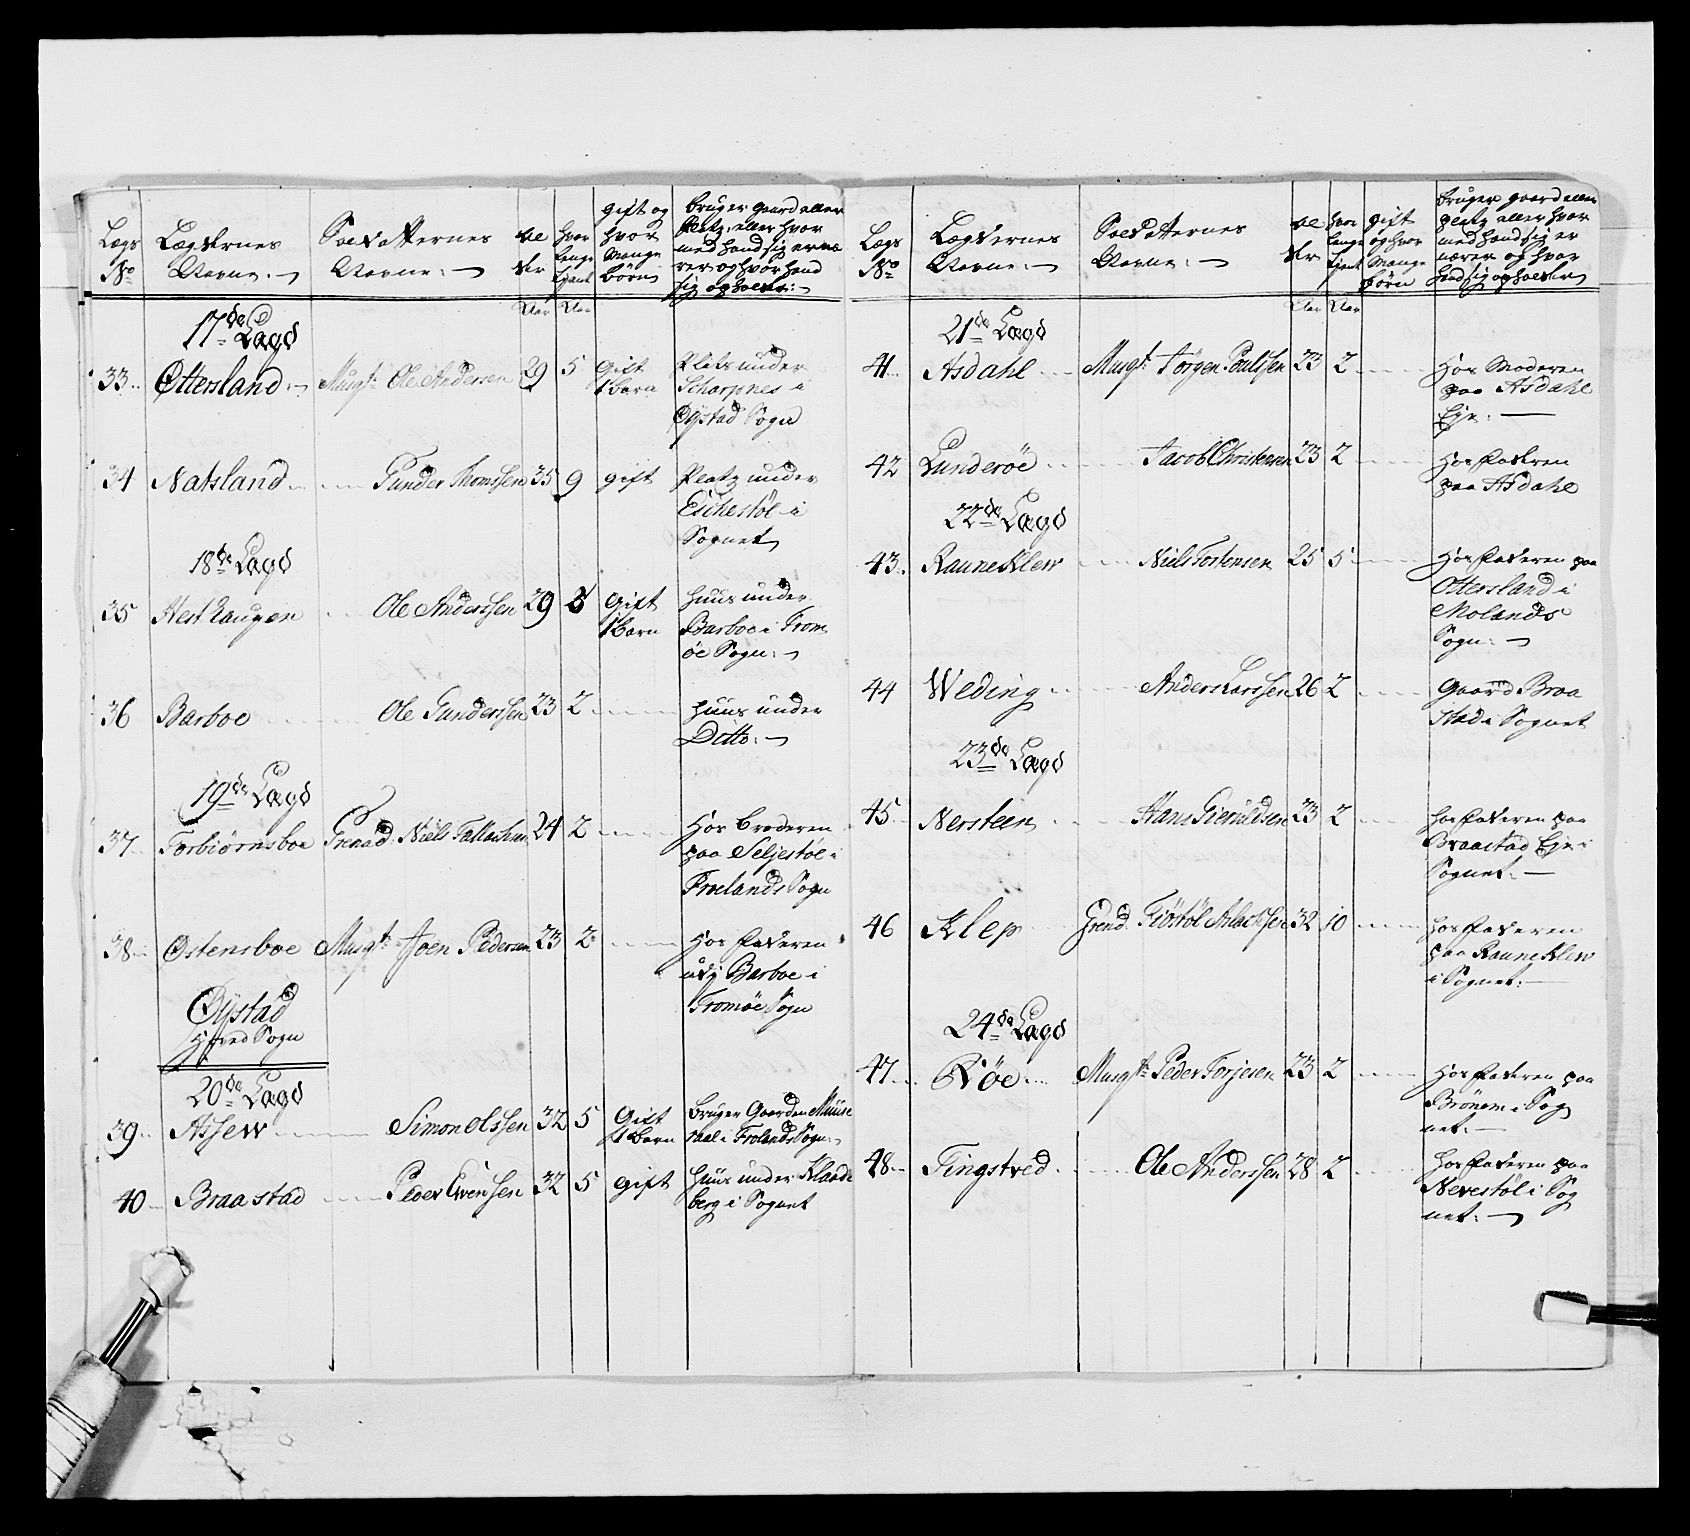 Lægs No
Lægdernes Navne:
Soldatternes Navne:
Al der
hvor lenge tient
gift og hvor Mange børn
bruger gaard eller Platz, eller hvor med hand sig ernæ rer og hvor hand sig opholder:
Aar Aar
17de Lægd
33 Ottersland Musqt: Ole Andersen 29 5 gift 1 Barn Plats under
Scharpnes i
Øystad Sogn
34 Natsland Gunder Thomssen 35 9 gift Platz under
Eschestøl i
Sognet
18de Lægd
35 Hesthaugen Ole Anderssen 29 8 gift 1 Barn huus under
Barboe i Trom
øe Sogn:
36 Barboe Ole Gunderssen 23 2 huus under
Ditto:
19de Lægd
37 Torbiørnsboe Grenad. Niels 24 2 Hos broderen
paa Seljestøl i
Froelands Sogn
38 Østensboe Musqt: Joen Pedersen 23 2 Hos Faderen
udj Barboe i
Tromøe Sogn
Øystad
Hoved Sogn
20de Lægd
39 Assew Simon Olssen 32 5 Gift 1 Barn bruger Gaarden
i Frolands Sogn:
40 Braastad Peder Evenssen 32 5 gift huus under
berg i Sognet
Lægs No
Lægdernes Navne:
Soldatternes Navne:
Al der
hvor lenge tient
gift og hvor Mange børn
bruger gaard eller platz eller hvor med hand sig er nærer og hvor hand sig opholder
Aar Aar
21de Lægd
41 Asdahl Musqt: Jørgen Poulssen 23 2 hos Moderen
paa Asdahl
Eje:
42 Lunderøe Jacob Christensen 23 2 Hos Faderen
paa Asdahl
22de Lægd
43 Rauneklew Niels Torstensen 25 5 Hos Faderen paa
Ottersland i
Molands
Sogn:
44 Weding Anders Larssen 26 2 Gaard Braa
stad i Sognet
23de Lægd
45 Nersteen Hans Gieruldsen 23 2 hos Faderen paa
Braastad Eje i
Sognet:
46 Klep Grend. Tiøstøl Aslachsen 32 10 hos Faderen
paa Rauneklew
i Sognet:
24de Lægd
47 Røe Musqt: Peder Torjesen 23 2 Hos Faderen paa
Brønem i Sog
net:
48 Tingstved Ole Anderssen 28 2 hos Faderen paa
Nevestøl i Sog
net: